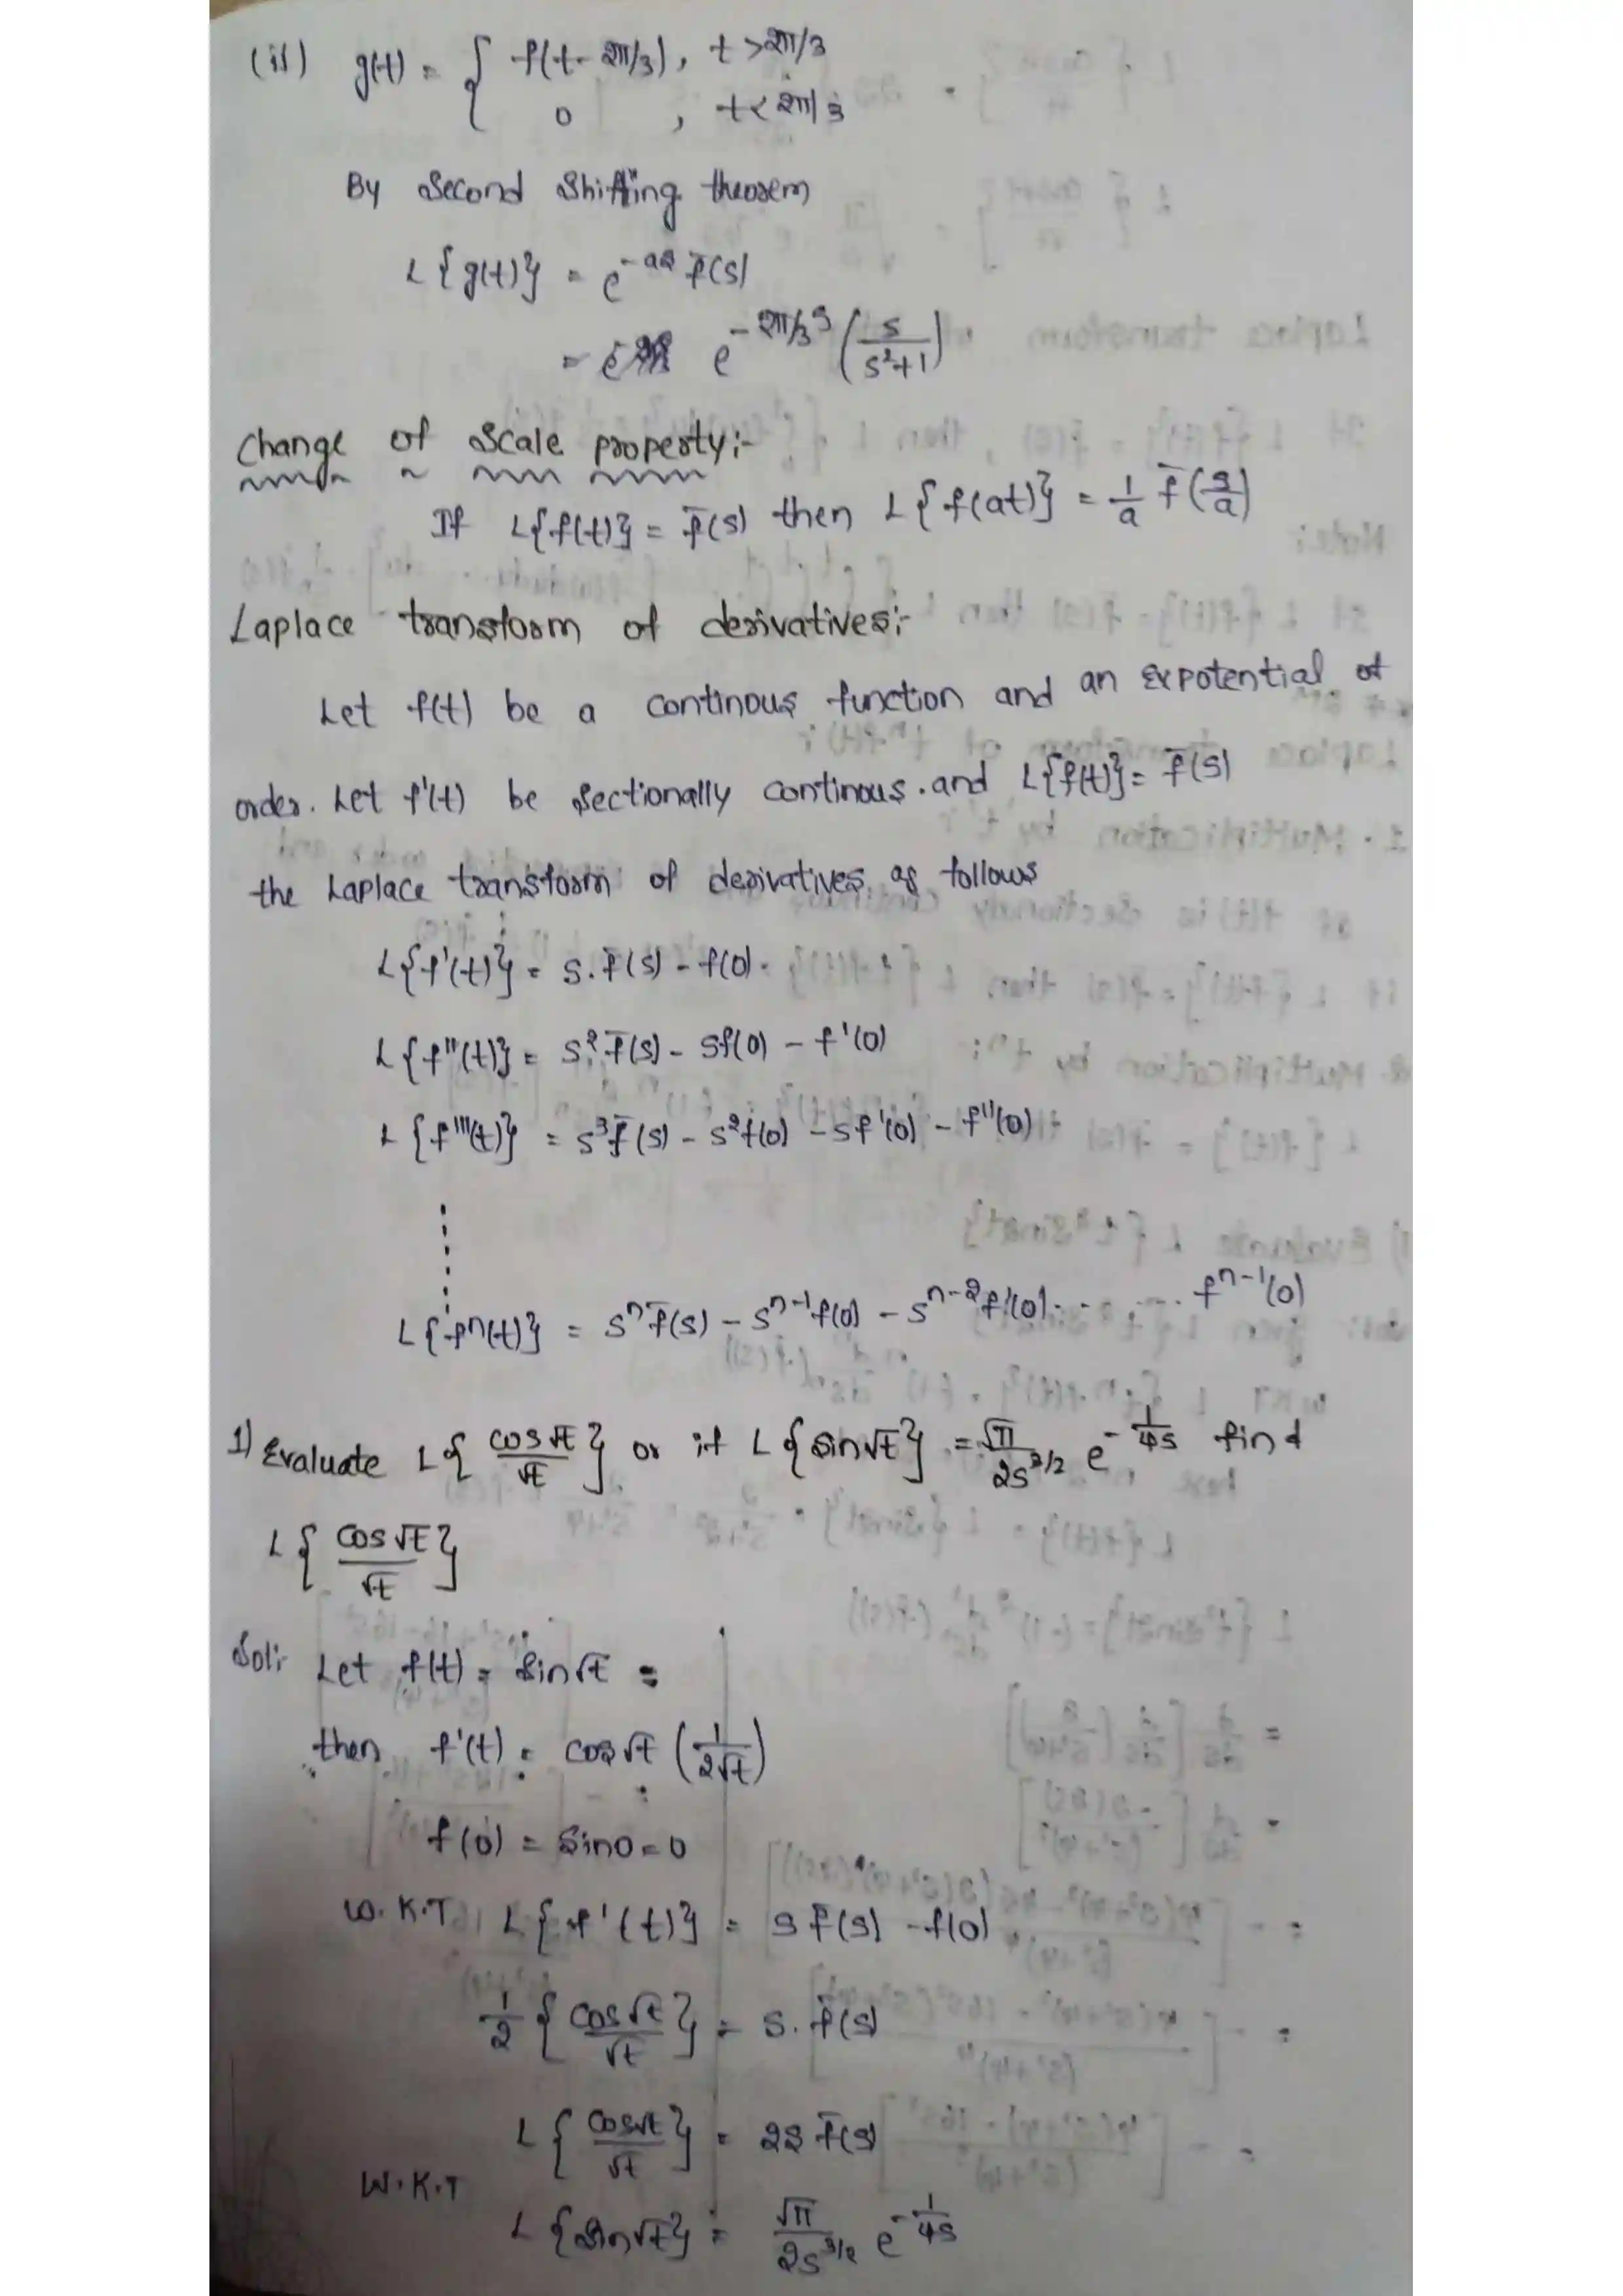 (ii) g(t) = { f(t - 2π/3), t > 2π/3
0 , t < 2π/3
By Second Shifting theorem
L{g(t)} = e^{-as} f̄(s)
= e^{-2π/3 s} (s/(s²+1))
Change of Scale property:-
If L{f(t)} = f̄(s) then L{f(at)} = 1/a f̄(s/a)
Laplace transform of derivatives:-
Let f(t) be a continous function and an Expotential of
order. Let f'(t) be sectionally continous. and L{f(t)} = f̄(s)
the Laplace transform of derivatives as follows
L{f'(t)} = s.f̄(s) - f(0).
L{f''(t)} = s² f̄(s) - sf(0) - f'(0)
L{f'''(t)} = s³ f̄(s) - s² f(0) - sf'(0) - f''(0)
L{fⁿ(t)} = sⁿ f̄(s) - s^{n-1} f(0) - s^{n-2} f'(0) - . . . . . f^{n-1}(0)
1) Evaluate L{cos√t/√t} or if L{sin√t} = √π/2s^{3/2} e^{-1/4s} find
L{cos√t/√t}
Sol:- Let f(t) = sin√t =
then f'(t) = cos√t (1/2√t)
f(0) = sin0 = 0
W.K.T L{f'(t)} = s f̄(s) - f(0)
1/2 {cos√t/√t} = s. f̄(s)
L{cos√t/√t} = 2s f̄(s)
W.K.T
L{sin√t} = √π/2s^{3/2} e^{-1/4s}